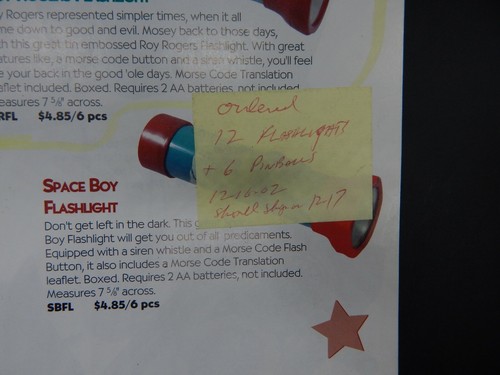 y Rogers represented simpler times, when it all
me down to good and evil. Mosey back to those days,
h this great tin embossed Roy Rogers Flashlight. With great
atures like, a morse code button and a siren whistle, you'll feel
e your back in the good 'ole days. Morse Code Translation
aflet included. Boxed. Requires 2 AA batteries, not included.
easures 7 5/8" across.
RFL $4.85/6 pcs
ordered
12 FLASHLIGHTS
+ 6
12-16-02
should ship on 12/17
SPACE BOY
FLASHLIGHT
Don't get left in the dark. This
Boy Flashlight will get you out of all predicaments.
Equipped with a siren whistle and a Morse Code Flash
Button, it also includes a Morse Code Translation
leaflet. Boxed. Requires 2 AA batteries, not included.
Measures 7 5/8" across.
SBFL $4.85/6 pcs